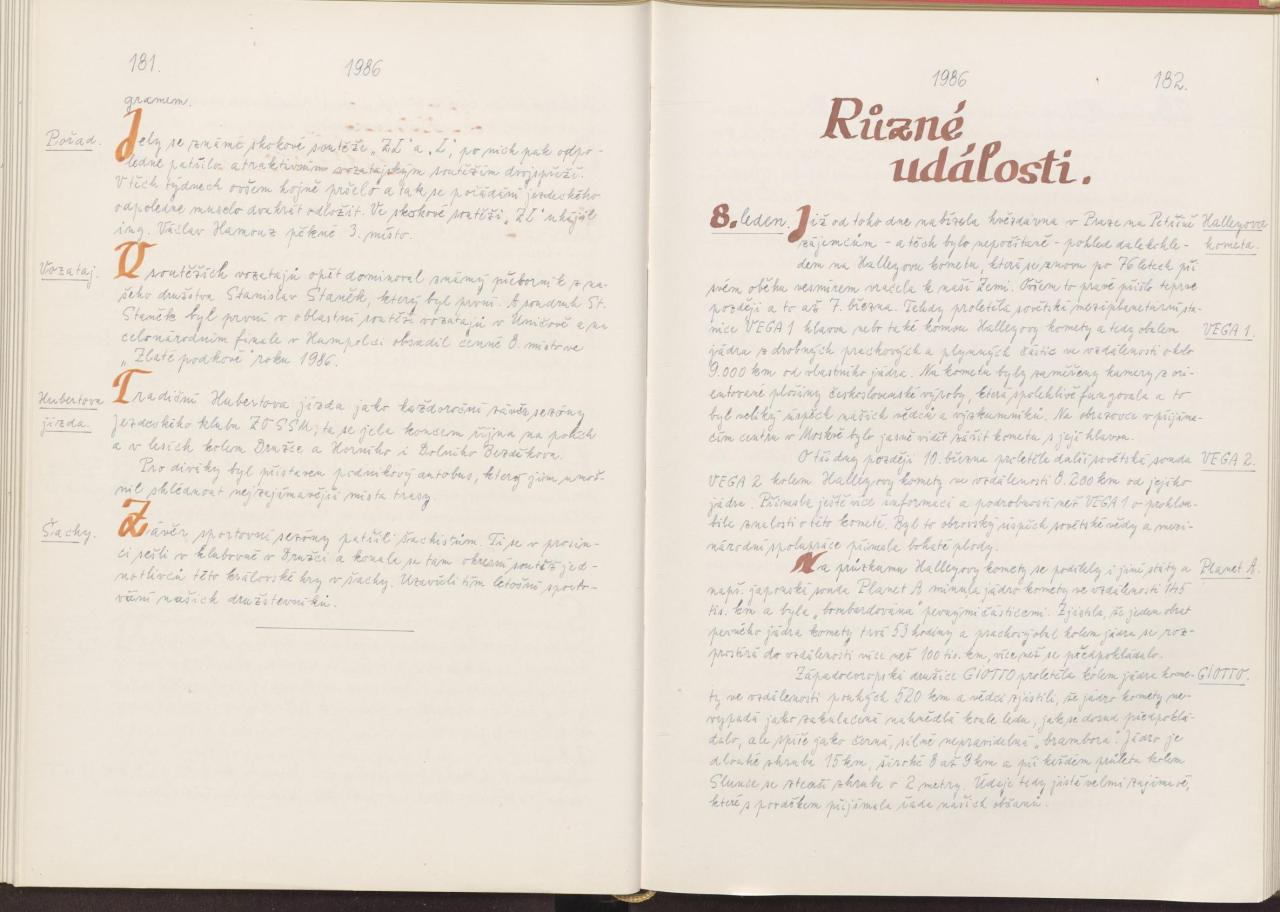 181.
1986
gramem.
Pořad.
Jely se známé skokové soutěže „ZL" a „L", po nich pak odpo-
ledne patřilo atraktivním vozatajským soutěžím dvojspřeží.
V těch týdnech ovšem hojně pršelo a tak se pořádání jezdeckého
odpoledne muselo dvakrát odložit. Ve skokové soutěži „ZL" uhájil
ing. Václav Hamouz pěkné 3. místo.
Vozataj.
V soutěžích vozatajů opět dominoval známý přeborník z na-
šeho družstva Stanislav Staněk, který byl první. A soudruh St.
Staněk byl první v oblastní soutěži vozatajů v Uničově a na
celonárodním finále v Humpolci obsadil cenné 8. místo ve
„Zlaté podkově" roku 1986.
Hubertova
jízda.
Tradiční Hubertova jízda jako každoroční závěr sezóny
Jezdeckého klubu ZO SSM, ta se jela koncem října na polích
a v lesích kolem Družce a Horního i Dolního Bezděkova.
Pro diváky byl přistaven podnikový autobus, který jim umož-
nil shlédnout nejzajímavější místa trasy.
Šachy.
Závěr sportovní sezóny patřil šachistům. Ti se v prosin-
ci sešli v klubovně v Družci a konala se tam okresní soutěž jed-
notlivců této královské hry v šachy. Uzavřeli tím letošní sporto-
vání našich družstevníků.
1986
182.
Různé
události.
8. leden.
Již od toho dne nabízela hvězdárna v Praze na Petříně
Halleyova
kometa.
zájemcům - a těch bylo nepočítaně - pohled dalekohle-
dem na Halleyovu kometu, která se znovu po 76 letech při
svém oběhu vesmírem vracela k naší Zemi. Ovšem to pravé přišlo teprve
později a to až 7. března. Tehdy proletěla sovětská meziplanetární sta-
nice VEGA 1 hlavou nebo také komou Halleyovy komety a tedy obalem
VEGA 1.
jádra z drobných prachových a plynných částic ve vzdálenosti okolo
9.000 km od vlastního jádra. Na kometu byly zaměřeny kamery z ori-
entované plošiny československé výroby, která spolehlivě fungovala a to
byl veliký úspěch našich vědců a výzkumníků. Na obrazovce v přijíma-
cím centru v Moskvě bylo jasně vidět zářit kometu s její hlavou.
O tři dny později 10. března proletěla další sovětská sonda
VEGA 2.
VEGA 2 kolem Halleyovy komety ve vzdálenosti 8.200 km od jejího
jádra. Přinesla ještě více informací a podrobností než VEGA 1 o prohlou-
bila znalosti o této kometě. Byl to obrovský úspěch sovětské vědy a mezi-
národní spolupráce přinesla bohaté plody.
Na průzkumu Halleyovy komety se podílely i jiné státy a
Planet A.
např. japonská sonda Planet A minula jádro komety ve vzdálenosti 145
tis. km a byla „bombardována" pevnými částicemi. Zjistila, že jeden obrat
pevného jádra komety trvá 53 hodiny a prachový obal kolem jádra se roz-
prostírá do vzdálenosti více než 100 tis. km, více než se předpokládalo.
Západoevropská družice GIOTTO proletěla kolem jádra kome-
GIOTTO.
ty ve vzdálenosti pouhých 520 km a vědci zjistili, že jádro komety ne-
vypadá jako zakulacená nahnědlá koule ledu, jak se dosud předpoklá-
dalo, ale spíše jako černá, silně nepravidelná „brambora". Jádro je
dlouhé zhruba 15 km, široké 8 až 9 km a při každém průletu kolem
Slunce se ztenčí zhruba o 2 metry. Údaje tedy jistě velmi zajímavé,
které s povděkem přijímala řada našich občanů.